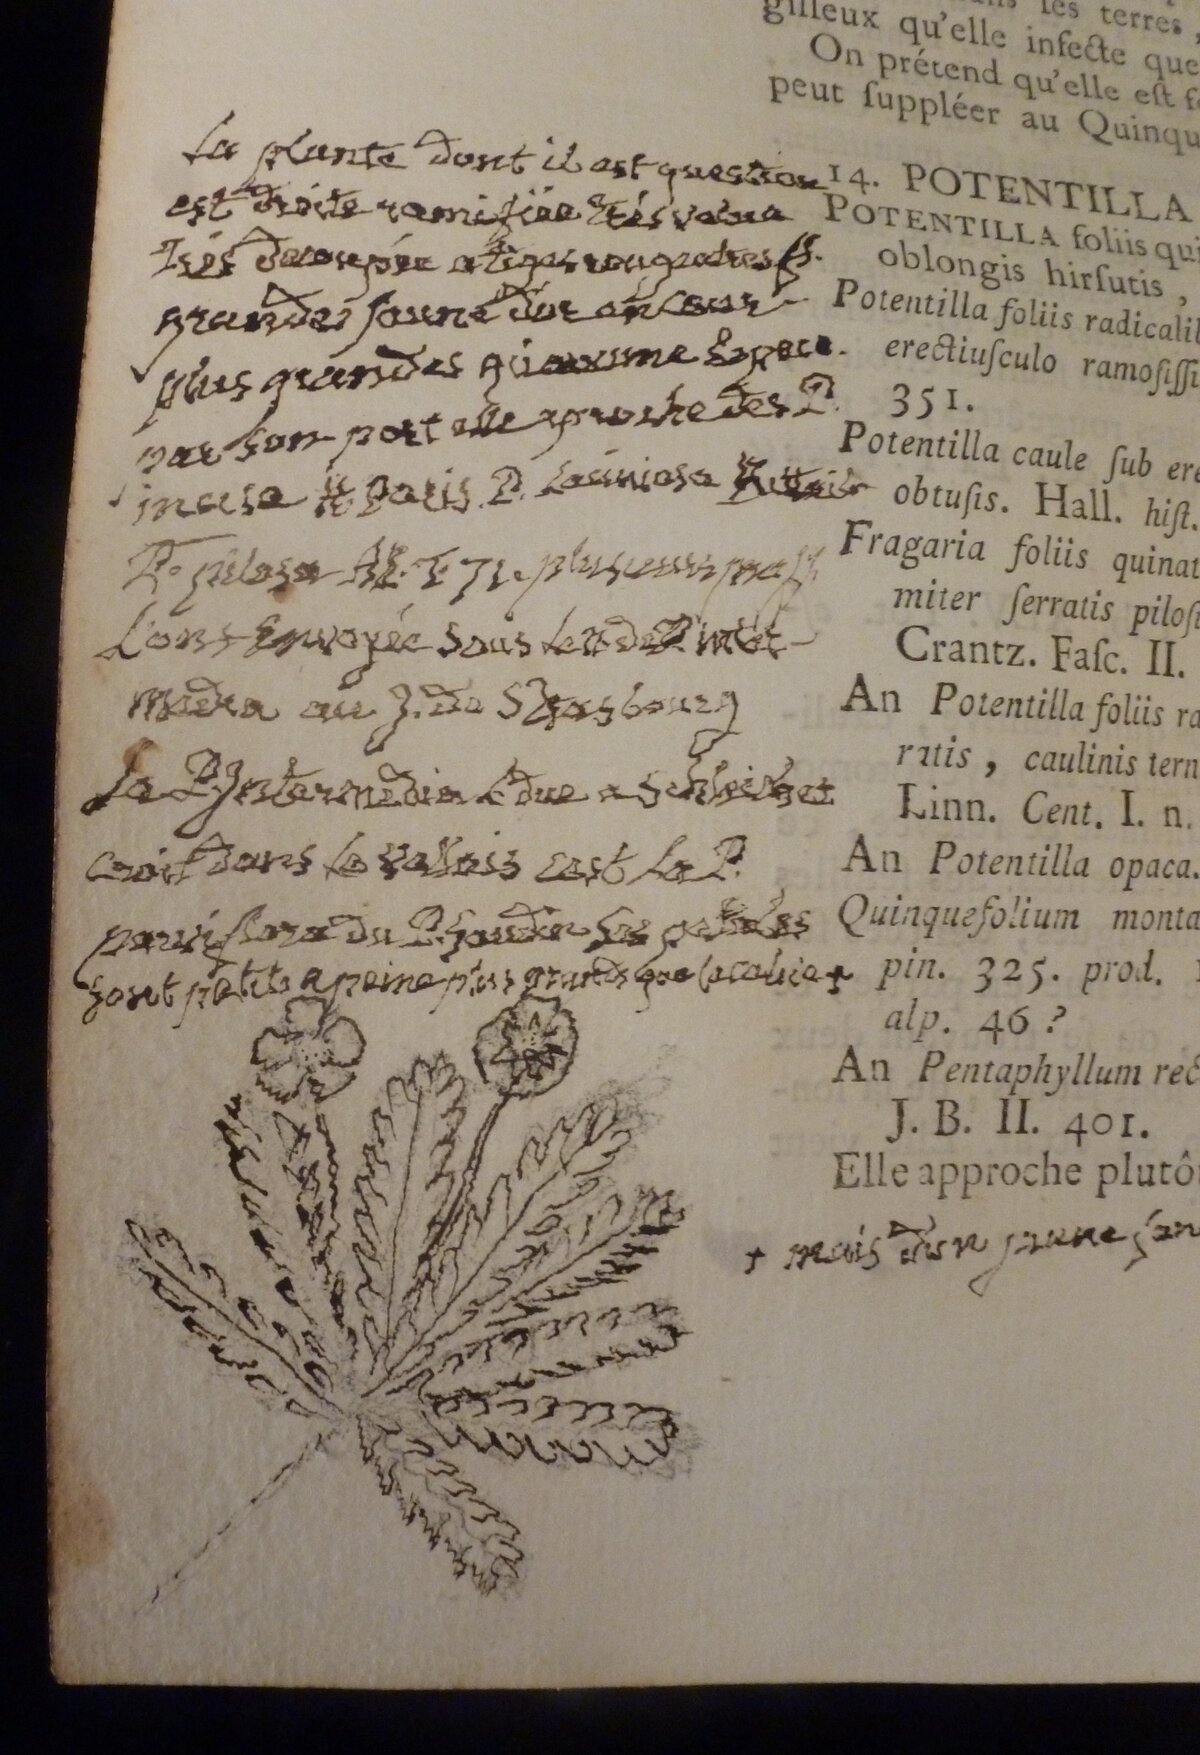 les terres,
gilleux qu'elle infecte que
On prétend qu'elle est
peut suppléer au Quinqu
La plante dont il est question
est droite ramifiée très velue
très decoupée a tiges rougeatres fl.
grandes jaune d'or en coeur
plus grandes qu'aucune Espece.
par son port elle aproche des P.
incisa H. Paris. P. laciniosa
P. pilosa plusieurs
L'ont Envoyée sous le n. de P. inter-
media au J. de Strasbourg
La P. Intermedia
croit dans le vallais c'est la P.
parviflora du P. Gaudin ses petales
sont petits a peine plus grands que le calice +
14. POTENTILLA
POTENTILLA foliis qui
oblongis hirsutis,
Potentilla foliis radicalib
erectiusculo ramosissi
351.
Potentilla caule sub ere
obtusis. Hall. hist.
Fragaria foliis quinat
miter serratis pilosi
Crantz. Fasc. II.
An Potentilla foliis ra
ratis, caulinis tern
Linn. Cent. I. n.
An Potentilla opaca.
Quinquefolium monta
pin. 325. prod.
alp. 46?
An Pentaphyllum rect
J. B. II. 401.
Elle approche plutô
+ mais d'un jaune